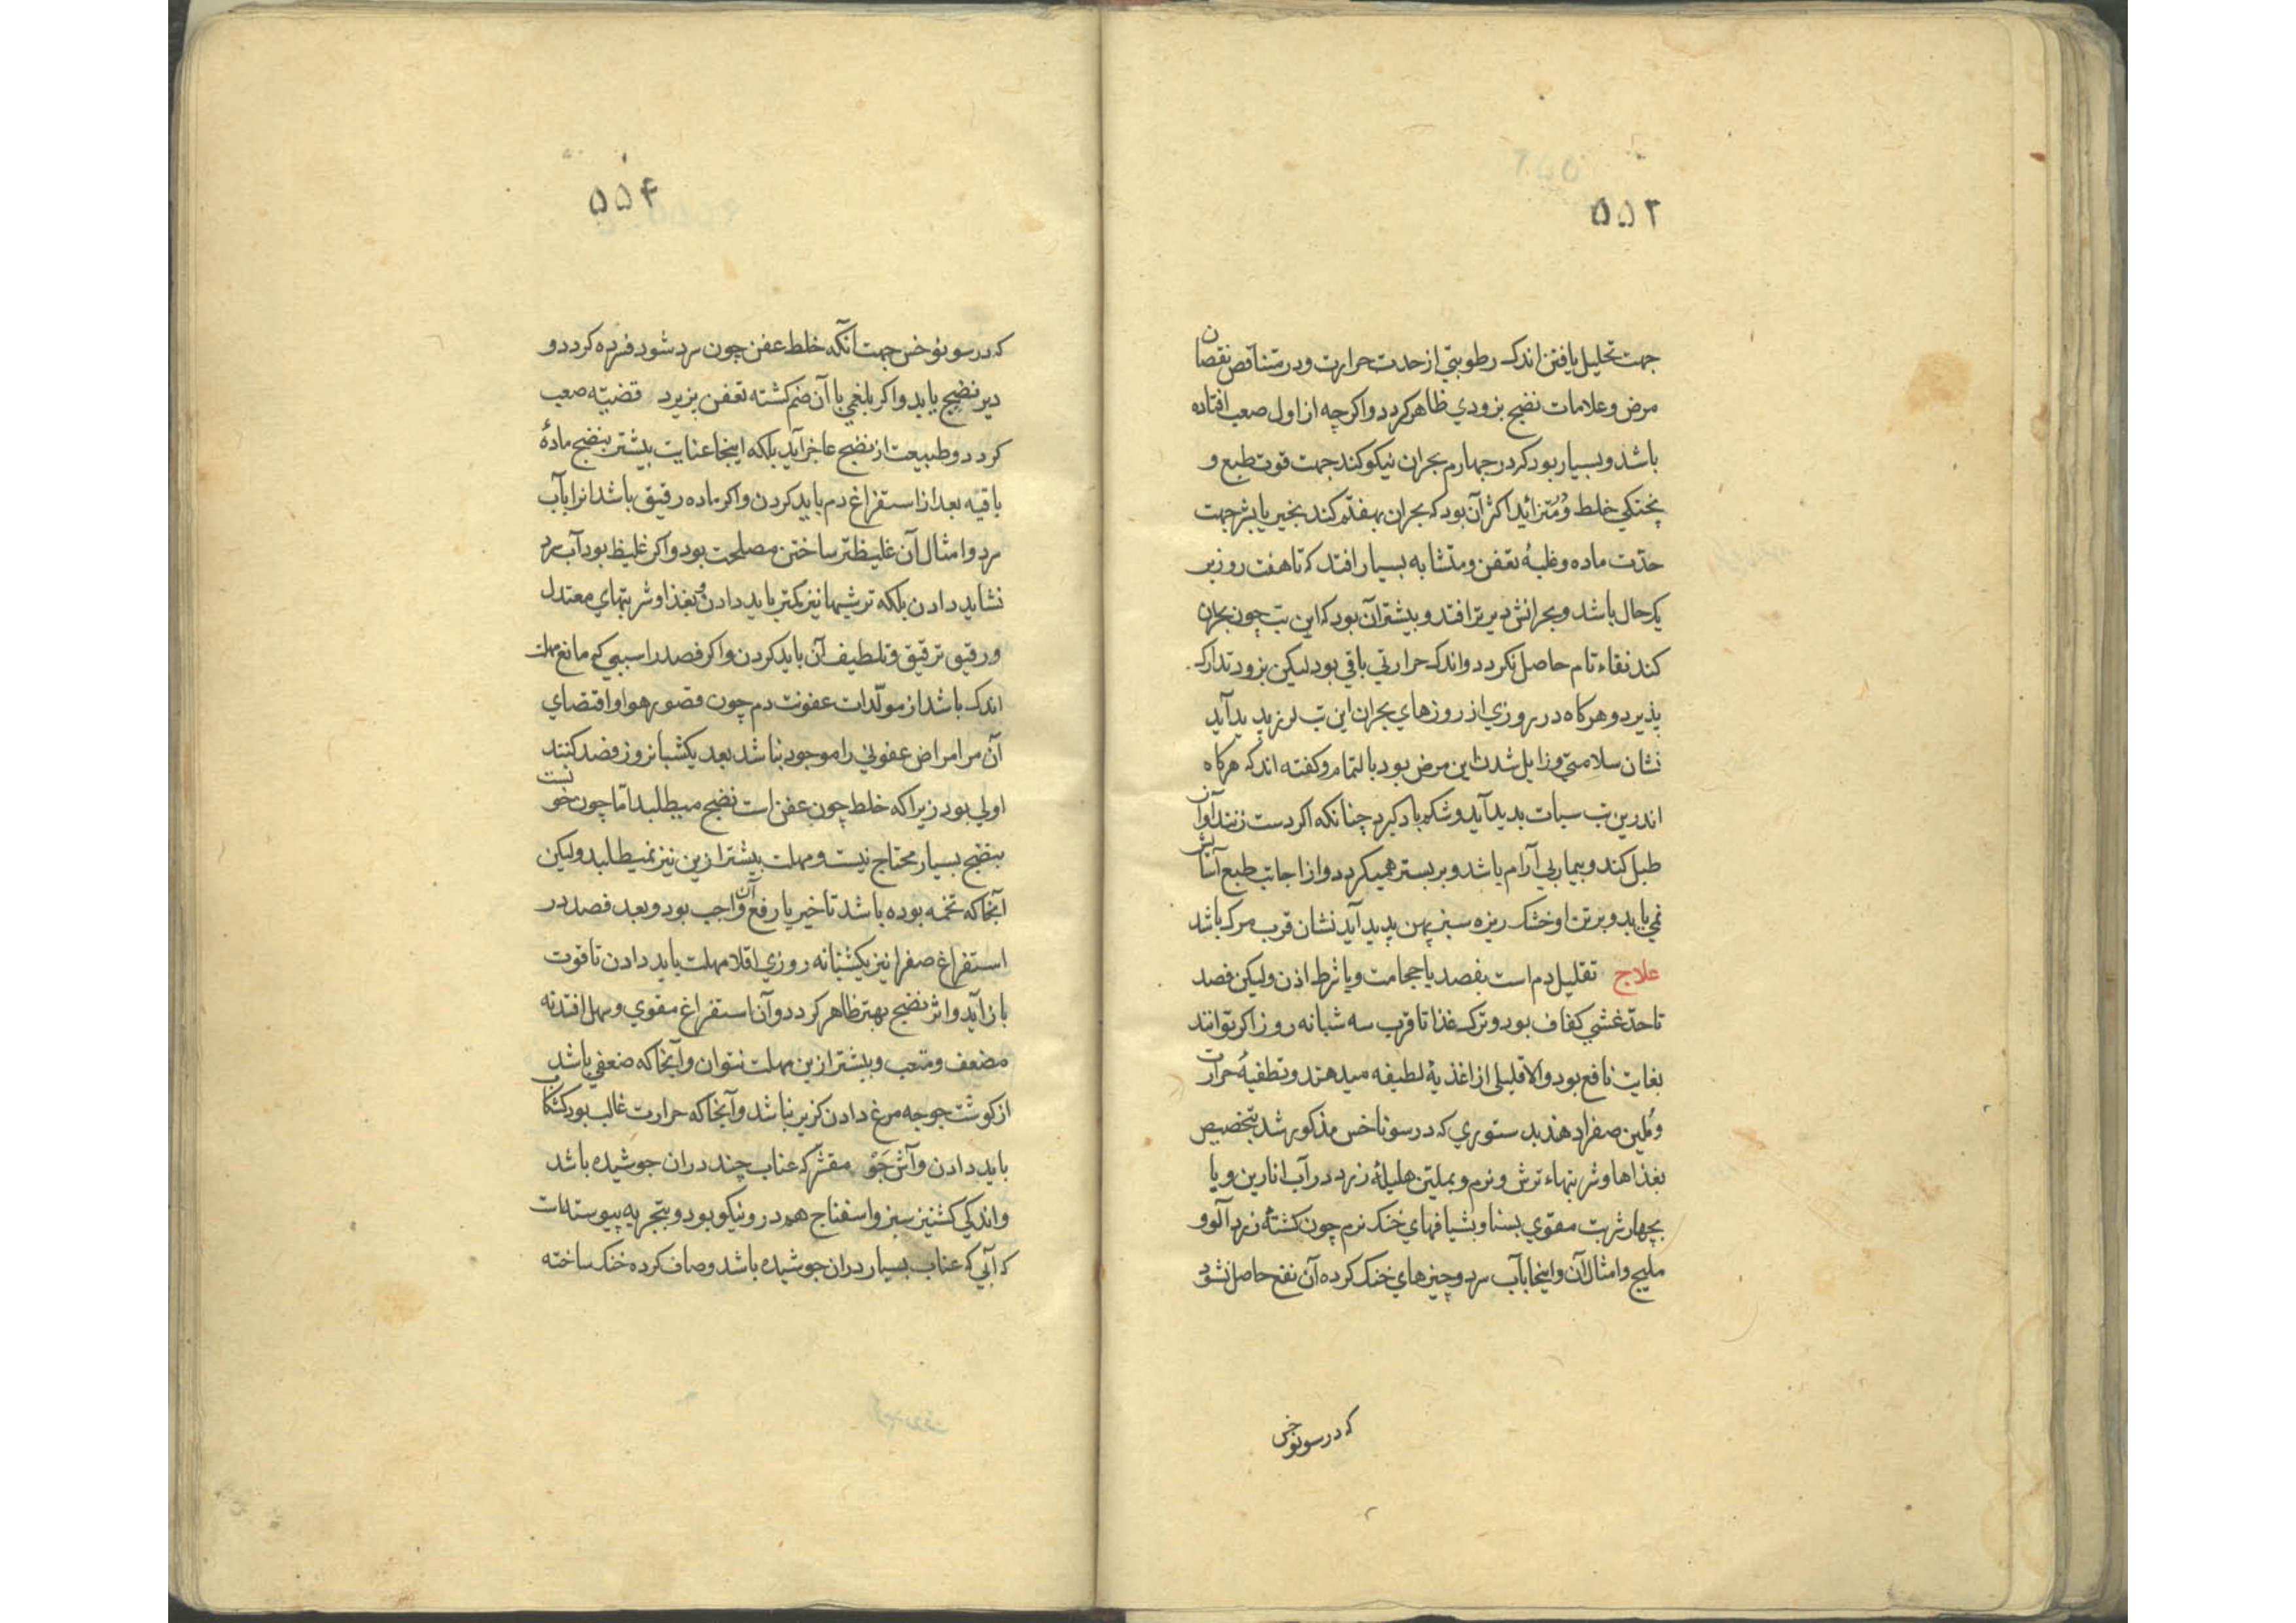 ۵۵۳
جهت تحلیل یافتن اندک رطوبتی از حدت حرارت و در متناقص نقصان
مرض و علامات نضج بزودي ظاهر کردد و اکرچه از اول صعب افتاده
باشد و بسیار بود که در چهارم بحران نیکو کند جهت قوت طبع و
پختکي خلط و متزائد اکثر آن بود که بحران بهفتم کند بخیر یا بشر جهت
حدّت ماده و غلبۀ تعفن و متشابه بسیار افتد که تا هفت روز بر
یک حال باشد و بحرانش دیرتر افتد و بیشتر آن بود که این تب چون بحران
کند نقاء تام حاصل نکردد و اندک حرارتي باقي بود لیکن بزود تدارک
پذیرد و هرکاه در روزي از روزهاي بحران این تب لرز پدید آید
نشان سلامتي و زایل شدن این مرض بود بالتمام و کفته اند که هرکاه
اندرین تب سبات پدید آید و شکم باد کیرد چنانکه اکر دست زنند آواز
طبل کند و بیمار بي آرام باشد و بر بستر همیکردد و از اجابت طبع آسایش
نمي یابد و بر تن او خشک ریزه سبز پهن پدید آید نشان قرب مرک باشد
علاج تقلیل دم است بفصد یا حجامت و یا شرط اذن ولیکن فصد
تا حدّ غشي کفاف بود و ترک غذا تا قرب سه شبانه روز اکر توانند
بغایت نافع بود والا قلیلي از اغذیۀ لطیفه میدهند و تطفیۀ حرارت
و ملین صفرا دهند بدستوري که در سوناخس مذکور شد بتخصیص
بغذاها و شربتهاء ترش و نرم و بملین هلیلۀ زرد در آب انارین و یا
بچهار شربت مقوي بسنا و بشیافهاي خنک نرم چون کشتۀ زرد آلو و
ملیح و امثال آن و اینجا بآب سرد و چیزهاي خنک کرده آن نفع حاصل نشود
که در سونوخس
۵۵۴
که در سونوخس جهت آنکه خلط عفن چون سرد شود فسرده کردد و
دیر نضج یابد و اکر بلغمي با آن ضم کشته تعفن پزیرد قضیّه صعب
کردد و طبیعت از نضج عاجز آید بلکه اینجا عنایت بیشتر بنضج مادۀ
باقیه بعد از استفراغ دم باید کردن و اکر ماده رقیق باشد انرا بآب
سرد و امثال آن غلیظتر ساختن مصلحت بود و اکر غلیظ بود آب سرد
نشاید دادن بلکه ترشیها نیز کمتر باید دادن و بغذا و شربتهاي معتدل
و رقیق ترقیق و تلطیف آن باید کردن و اکر فصد را سببي که مانع مهلت
اندک باشد از مولّدات عفونت دم چون قصور هوا و اقتضاي
آن مر امراض عفوني را موجود نباشد بعد یکشبانروز فصد کنند
اولي بود زیرا که خلط چون عفن است نضج میطلبد اما چون خونست
بنضج بسیار محتاج نیست و مهلت بیشتر ازین نیز نمیطلبد ولیکن
آنجا که تخمه بوده باشد تاخیر یا رفع آن واجب بود و بعد فصد در
استفراغ صفرا نیز یکشبانه روزي اقلا مهلت باید دادن تا قوت
باز آید و اثر نضج بهتر ظاهر کردد و آن استفراغ مقوي و سهل افتد نه
مضعف و متعب و بیشتر ازین مهلت نتوان و آنجا که ضعفي باشد
از کوشت جوجه مرغ دادن کزیر نباشد و آنجا که حرارت غالب بود کشکاب
باید دادن و آش جَوْ مقشّر که عناب چند دران جوشیده باشد
و اندکي کشنیز سبز و اسفناج هم درو نیکو بود و بتجربه پیوسته است
که آبي که عناب بسیار دران جوشیده باشد و صاف کرده خنک ساخته